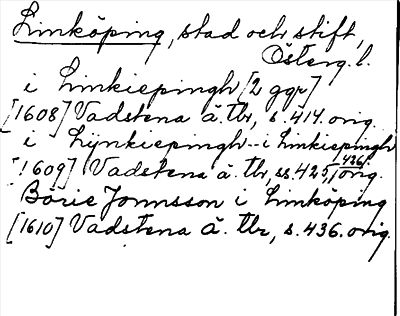 Linköping, stad och stift,
Österg.l.
i Linkiepingh [2 ggr]
[1608] Vadstena ä. tbr, s. 414. orig.
i Lijnkiepingh - i Linkiepingh
[1609] Vadstena ä. tbr, ss. 425, 426. orig.
Börie Jonnsson i Linköping
[1610] Vadstena ä. tbr, s. 436. orig.